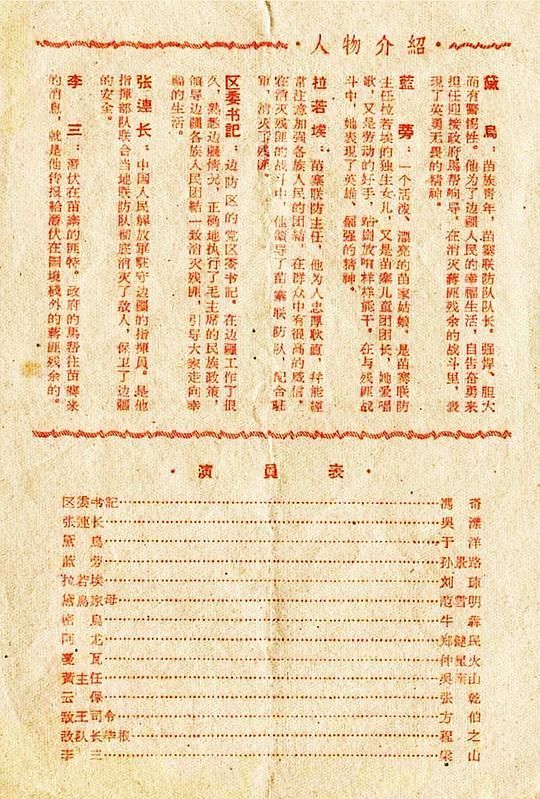 ·人物介紹·
黛 烏：苗族青年，苗寨联防队队长。强悍、胆大
而有警惕性。他为了边疆人民的幸福生活，自告奋勇来
担任迎接政府馬帮响导，在消灭蔣匪残余的战斗里，表
現了英勇无畏的精神。
藍 蒡：一个活泼、漂亮的苗家姑娘，是苗寨联防
主任拉若埃的独生女儿，又是苗寨儿童团团长，她爱唱
歌，又是劳动的好手，站崗放哨样样能干。在与残匪战
斗中，她表現了英雄、倔强的精神。
拉若埃：苗寨联防主任，他为人忠厚耿直，并能經
常注意加强各族人民的团結，在群众中有很高的威信。
在消灭残匪的战斗中，他領导了苗寨联防队，配合駐
軍，消灭了残匪。
区委书記：边防区的党区委书記。在边疆工作了很
久，熟悉边疆情况，正确地执行了毛主席的民族政策，
領导边疆各族人民团結一致消灭残匪，引导大家走向幸
福的生活。
张連长：中国人民解放軍駐守边疆的指揮員。是他
指揮部队联合当地联防队彻底消灭了敌人，保卫了边疆
的安全。
李 三：潛伏在苗寨的匪特。政府的馬帮往苗寨来
的消息，就是他传报給潛伏在国境綫外的蔣匪残余的。
·演員表·
区委书記……馮奇
张連长……吳漾
黛烏……于洋
藍蒡……孙景路
拉若埃……刘琼
黛烏家母……范雪明
密烏……牛犇
阿龙……郑健民
戛瓦……仲星火
黃主任……吳南山
云保……张乾
敌王司令……方伯
敌队长……程之
李三……梁山